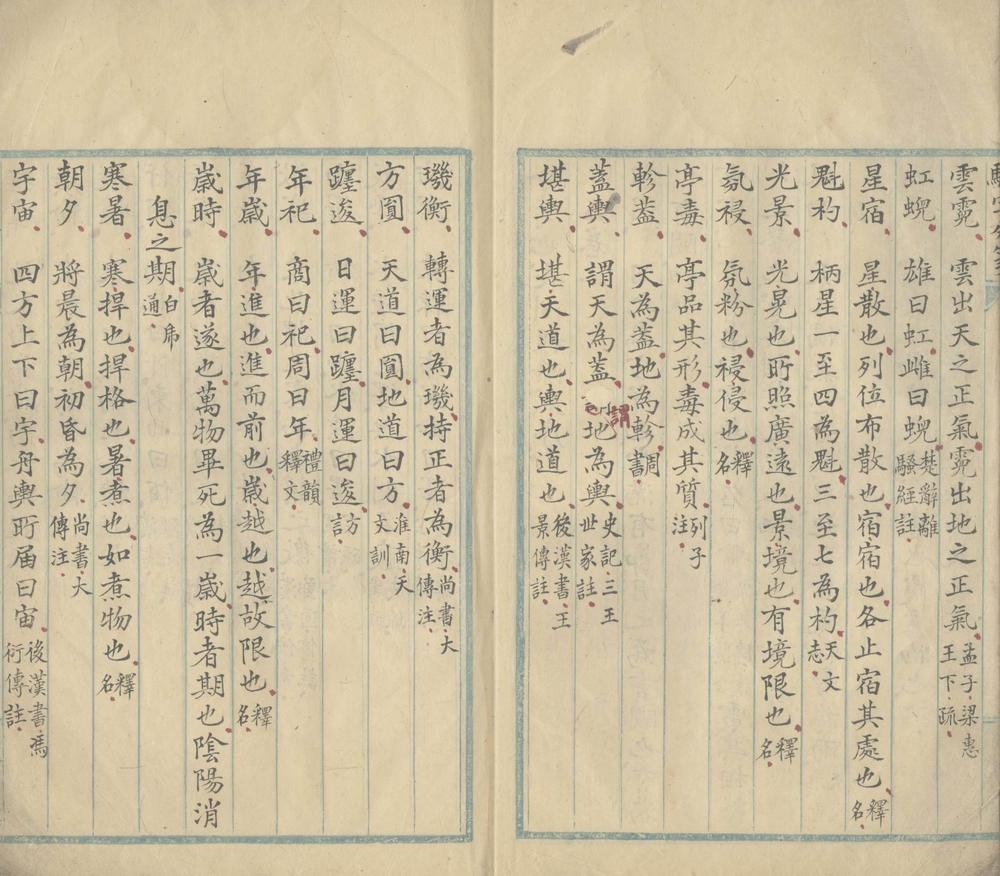 雲霓 雲出天之正氣霓出地之正氣 孟子梁惠王下疏
虹蜺 雄曰虹雌曰蜺 楚辭離騷經註
星宿 星散也列位布散也宿宿也各止宿其處也 釋名
魁杓 柄星一至四為魁三至七為杓 天文志
光景 光晃也所照廣遠也景境也有境限也 釋名
氛祲 氛粉也祲侵也 釋名
亭毒 亭品其形毒成其質 列子注
軫蓋 天為蓋地為軫 周書
蓋輿 謂天為蓋謂地為輿 史記三王世家註
堪輿 堪天道也輿地道也 後漢書王景傳註
璣衡 轉運者為璣持正者為衡 尚書大傳注
方圓 天道曰圓地道曰方 淮南天文訓
躔逡 日運曰躔月運曰逡 方言
年祀 商曰祀周曰年 禮韻釋文
年歲 年進也進而前也歲越也越故限也 釋名
歲時 歲者遂也萬物畢死為一歲時者期也陰陽消
息之期 白虎通
寒暑 寒捍也捍格也暑煮也如煮物也 釋名
朝夕 將晨為朝初昏為夕 尚書大傳注
宇宙 四方上下曰宇舟輿所届曰宙 後漢書馮衍傳註